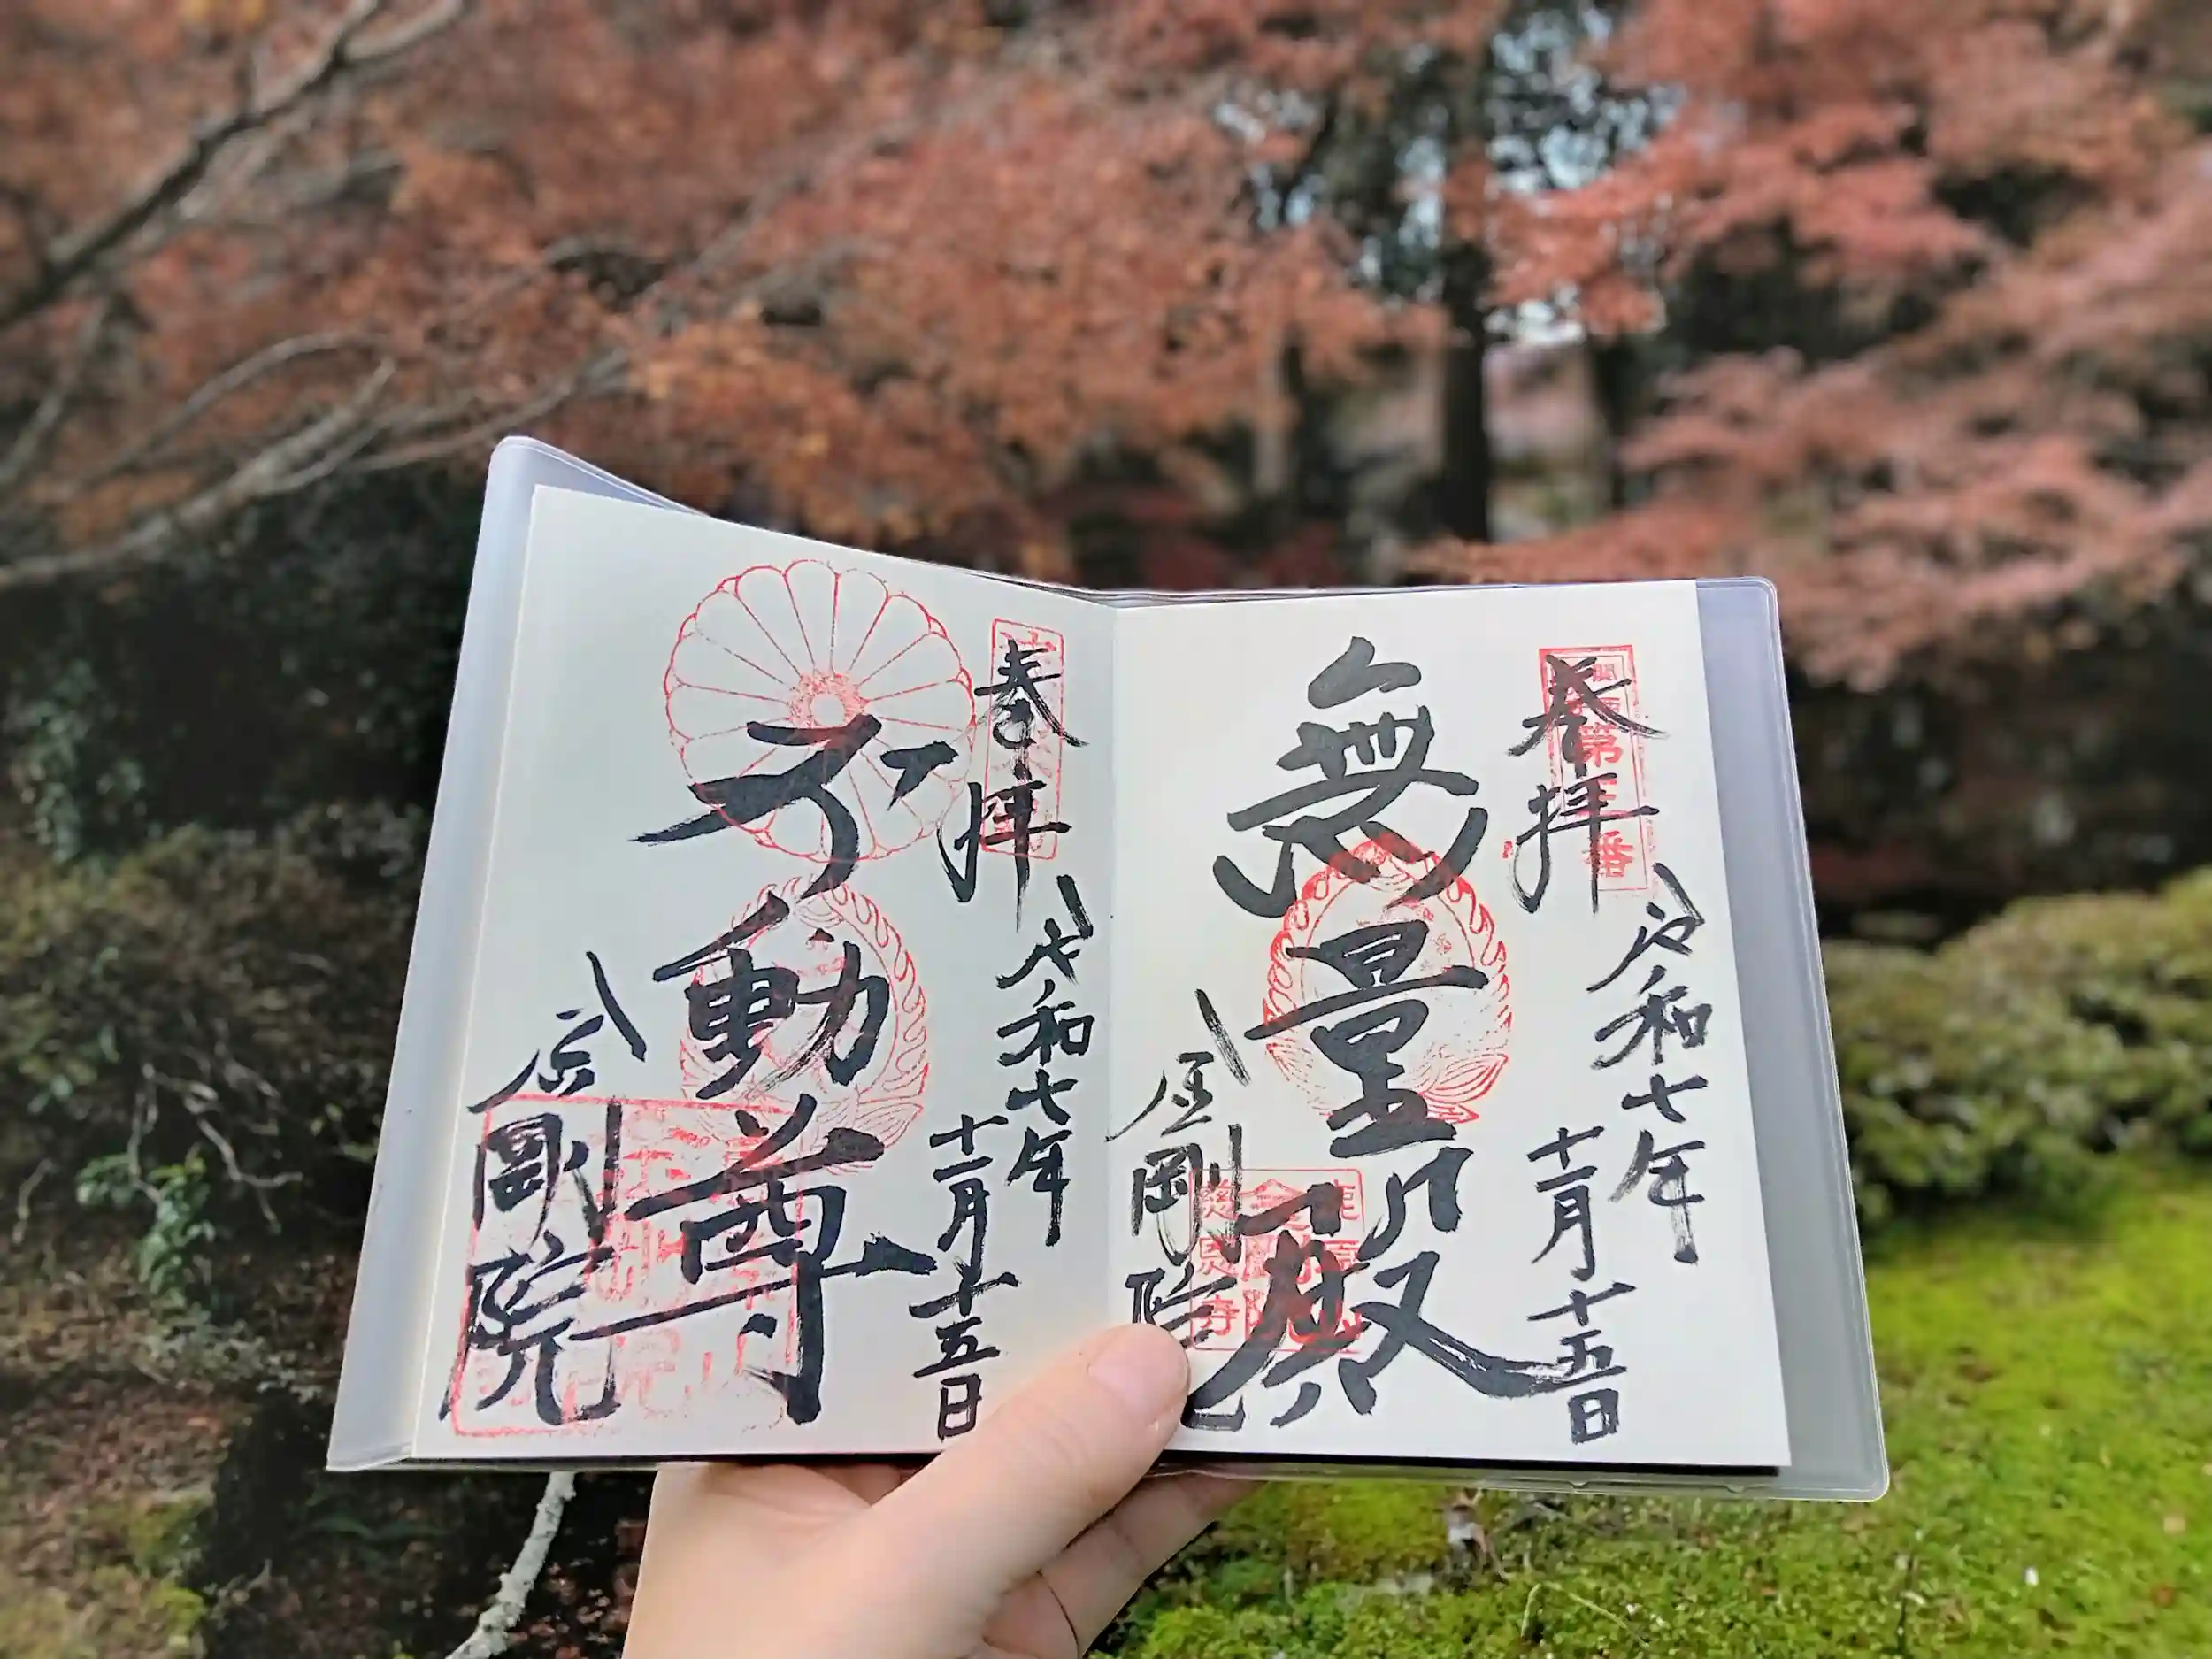 奉拝
令和七年
十一月十五日
無量殿
金剛院
第三番
奉拝
令和七年
十一月十五日
不動尊
金剛院